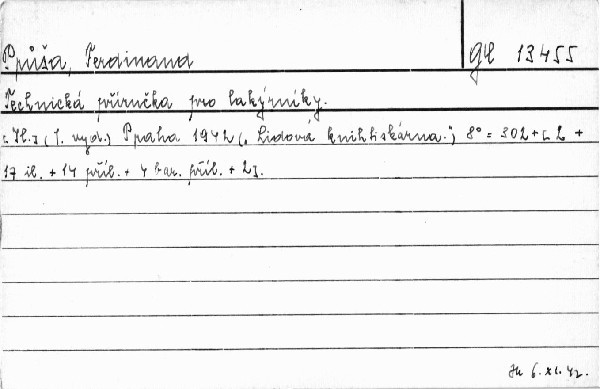 Průša, Ferdinand
GH 13455
Technická příručka pro lakýrníky.
[Il.] (1. vyd.) Praha 1942 (, Lidová knihtiskárna.") 8° = 302+[2 +
17 il. + 14 příl. + 4 bar. příl. + 2].
6.XI.42.